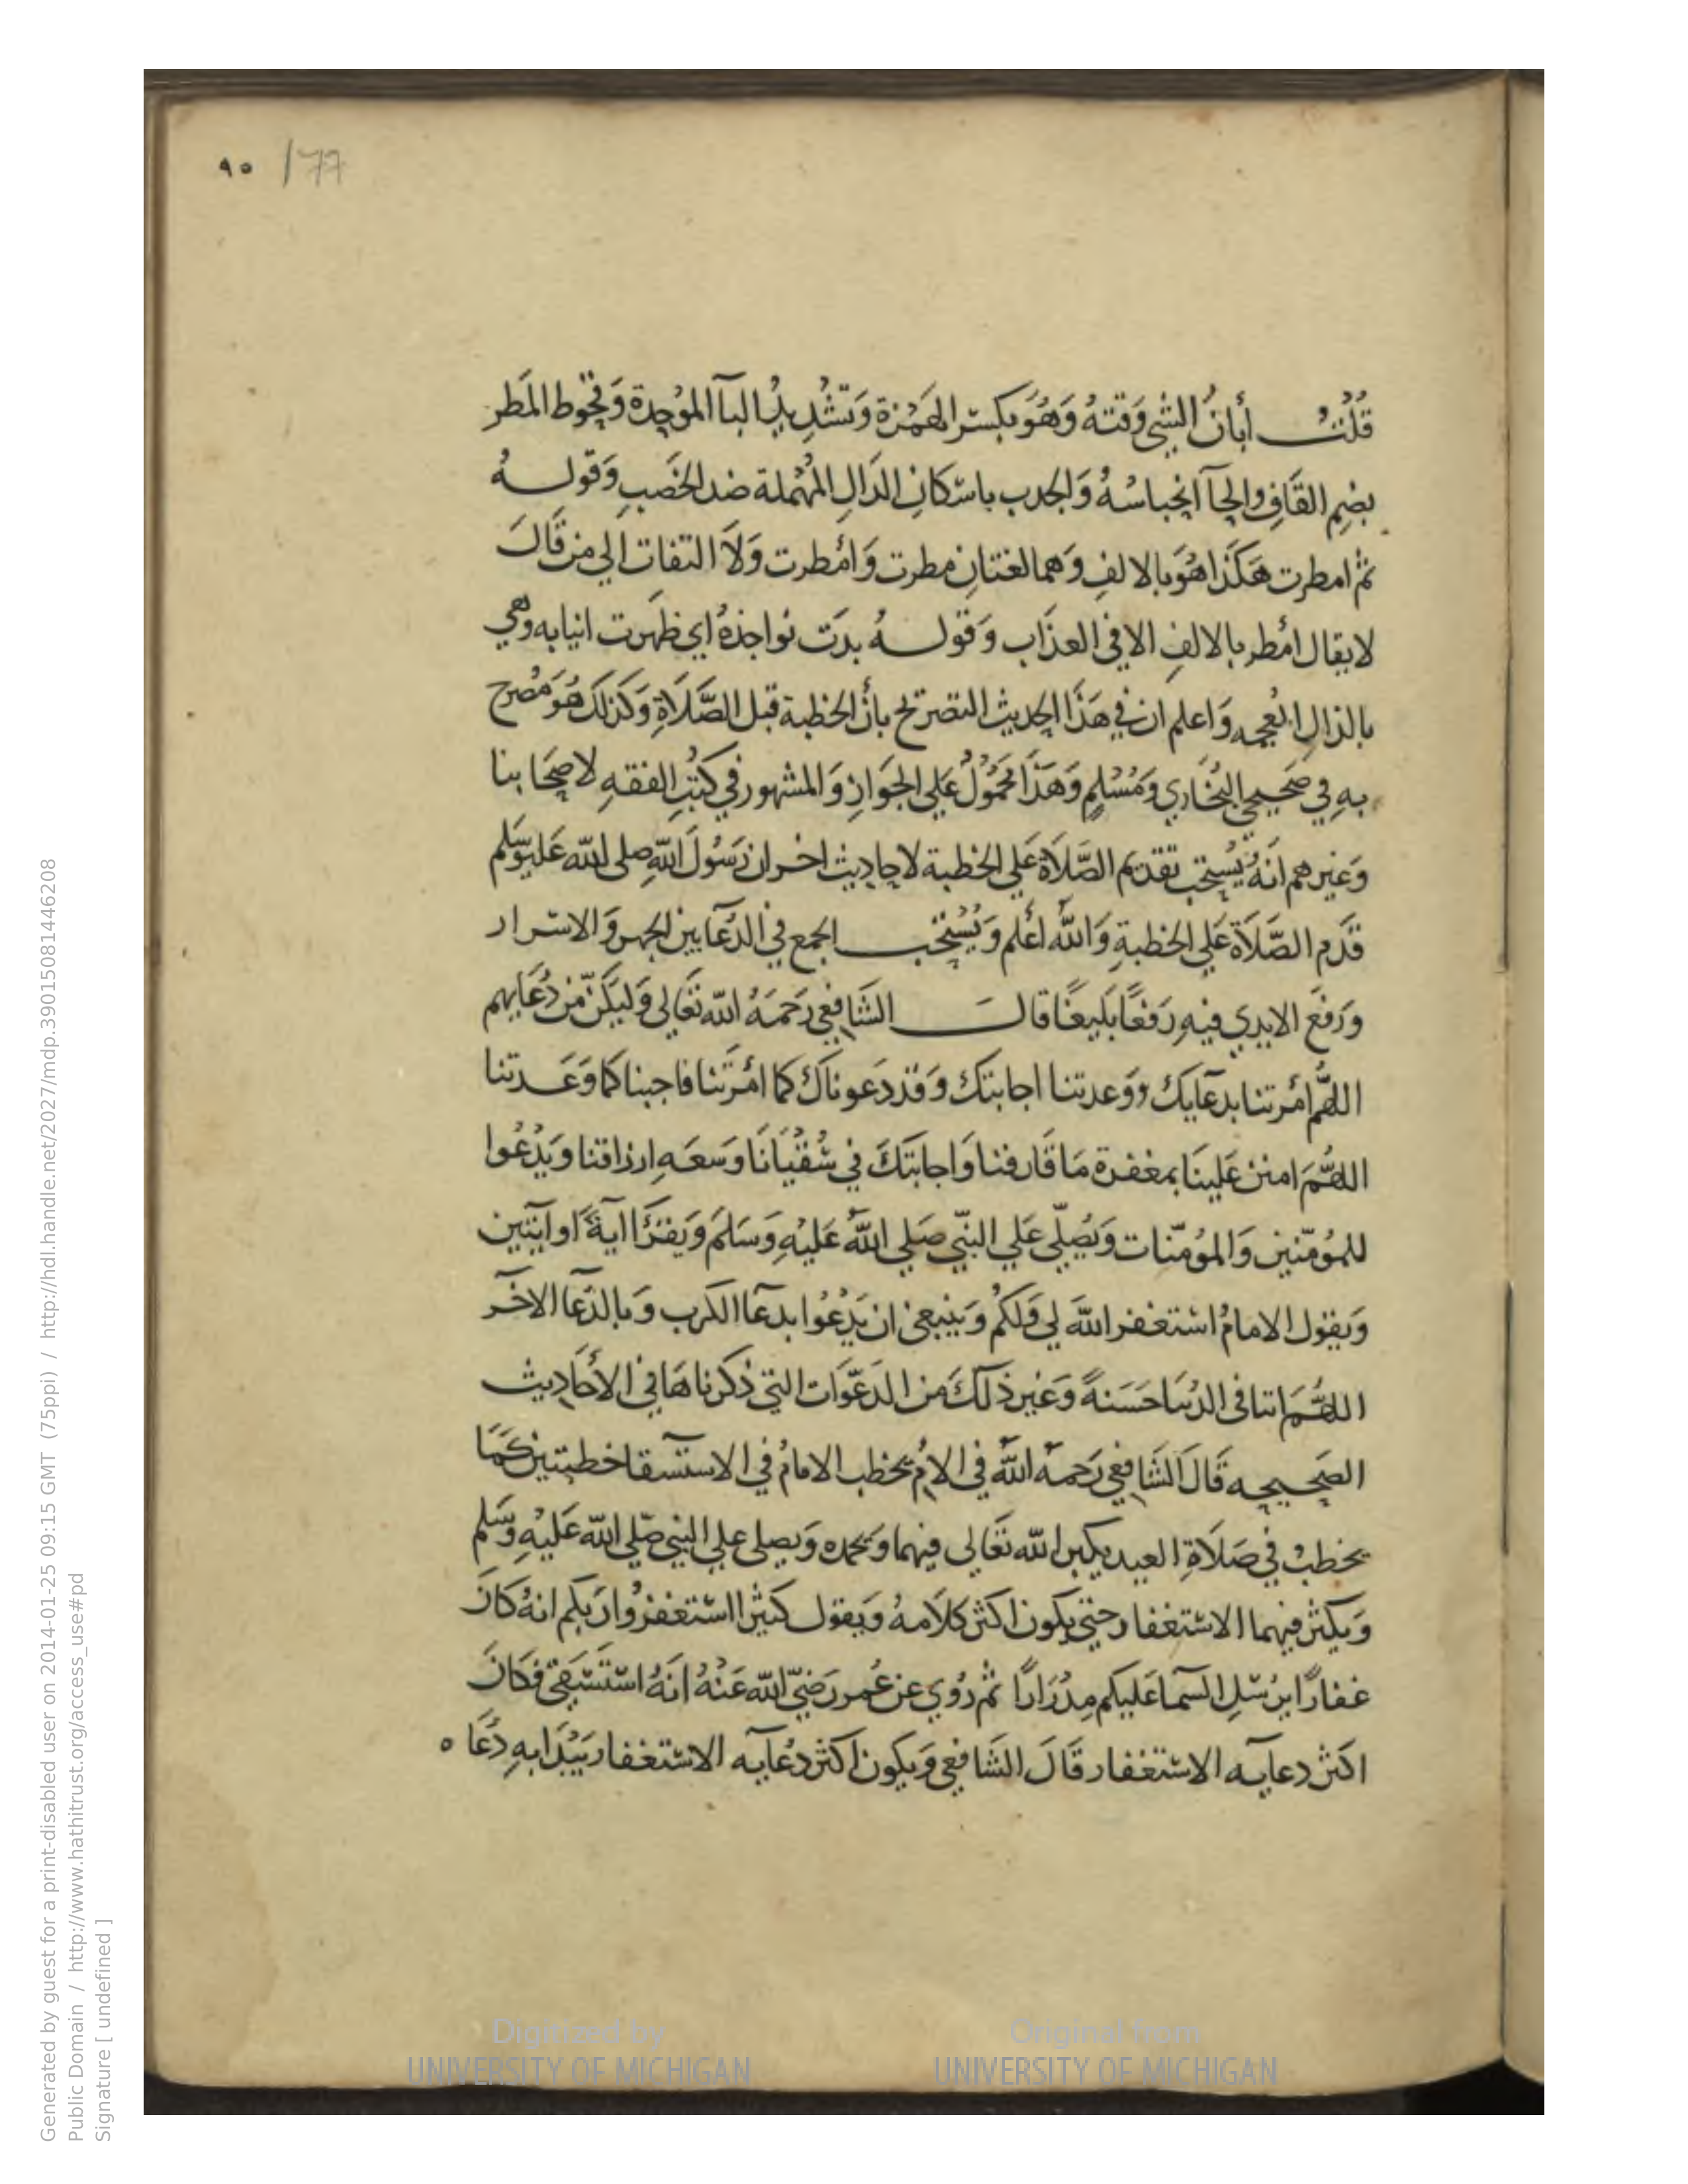 ٩٥ / 77
قُلْتُ أبانُ الشي وَقتهُ وَهُوَ بكسر الهَمْزة وَتشْدِيدُ البآ الموُحِدة وَقحُوط المَطر
بضِم القَافِ والحآ انحباسُهُ وَالجدب باسْكانِ الدَالِ المُهْملة ضد الخَصبِ وَقولـــهُ
ثم امطرت هَكذَا هُوَ بالالفِ وَهما لغتانِ مطرت وَامْطرت وَلاَ التفات الي من قَالَ
لا يقال امْطر بالالفِ الا في العذَاب وَقولـــهُ بدَت نواجذهُ اي ظهَرت انيابه وهي
بالذالِ المعجمه وَاعلم ان في هَذَا الحديث التصرتح بأن الخطبة قبل الصَّلاَةِ وَكذلكَ هُوَ مُصرح
بهِ في صَحيحي البُخَاري وَمُسْلمٍ وَهَذَا مَحمُولُ عَلي الجَوازِ وَالمشهور في كتُبِ الفقهِ لاصحَابنا
وَغيرهم انَهُ يُسْتحب تقديم الصَّلاَة عَلي الخطبة لاحادِيث اخر ان رَسُولَ اللهِ صلى الله عَليه وَسَلم
قدَم الصَّلاَة عَلي الخطبةِ وَاللهُ اعْلم وَيُسْتحب الجمع في الدُعَا بين الجهر وَالاسرار
وَرَفعَ الايدي فيهِ رَفعًا بَليغًا قالَ الشَافِعي رَحمَهُ الله تعَالى وَليَكن من دُعَايهم
اللهُمَّ امْرتنا بدعَايكَ ووَعدتنا اجابتكَ وَقد دَعوناكَ كما امْرَتنا فاجبنا كما وَعَدتنا
اللهُمَ امنن عَلينَا بمغفرة مَا قَارفنا وَاجابَتكَ في سُقْيَانَا وَسَعَهِ ارزاقنا وَيَدْعُوا
للمُومّنين وَالموُمنات وَيُصَلّي عَلي النبّي صَلي اللهُ عَليْهِ وَسَلمَ وَيَقرَا ايةً او ايتين
وَيقول الامامُ استغفر اللهَ لي وَلكمُ وَينبغي ان يَدْعُوا بدعَا الكرب وَبالدُعَا الاخَر
اللهُمَ اتنا في الدُنيَا حَسَنةً وَغير ذلكَ من الدَعَوَات التي ذكرناهَا في الأحَادِيث
الصَحيحه قَالَ الشَافِعي رَحمهُ اللهُ في الام يخطب الامامُ في الاستسقا خطبتين كَمَا
يخطبُ في صَلاَةِ العيد يكبر الله تعَالى فيهما وَيحمده وَيصلي علي النبي صَلي الله عَليْهِ وَسَلم
وَيكثر فيهما الاستغفار حتي يكون اكثر كلاَمهُ وَيقول كثيرا استغفرُوا رَبكم انهُ كانَ
غفارًا يرُسلِ السمآ عَليكم مِدْرَارًا ثم رُوي عن عُمر رَضي الله عَنْهُ انَهُ اسْتَسْقي فكانَ
اكثر دعايه الاستغفار قَالَ الشَافعي وَيكون اكثر دعُايه الاستغفار يَبْدَا بهِ دعَا ه
Generated by guest for a print-disabled user on 2014-01-25 09:15 GMT (75ppi) / http://hdl.handle.net/2027/mdp.39015081446208
Public Domain / http://www.hathitrust.org/access_use#pd
Signature [ undefined ]
Digitized by
UNIVERSITY OF MICHIGAN
Original from
UNIVERSITY OF MICHIGAN